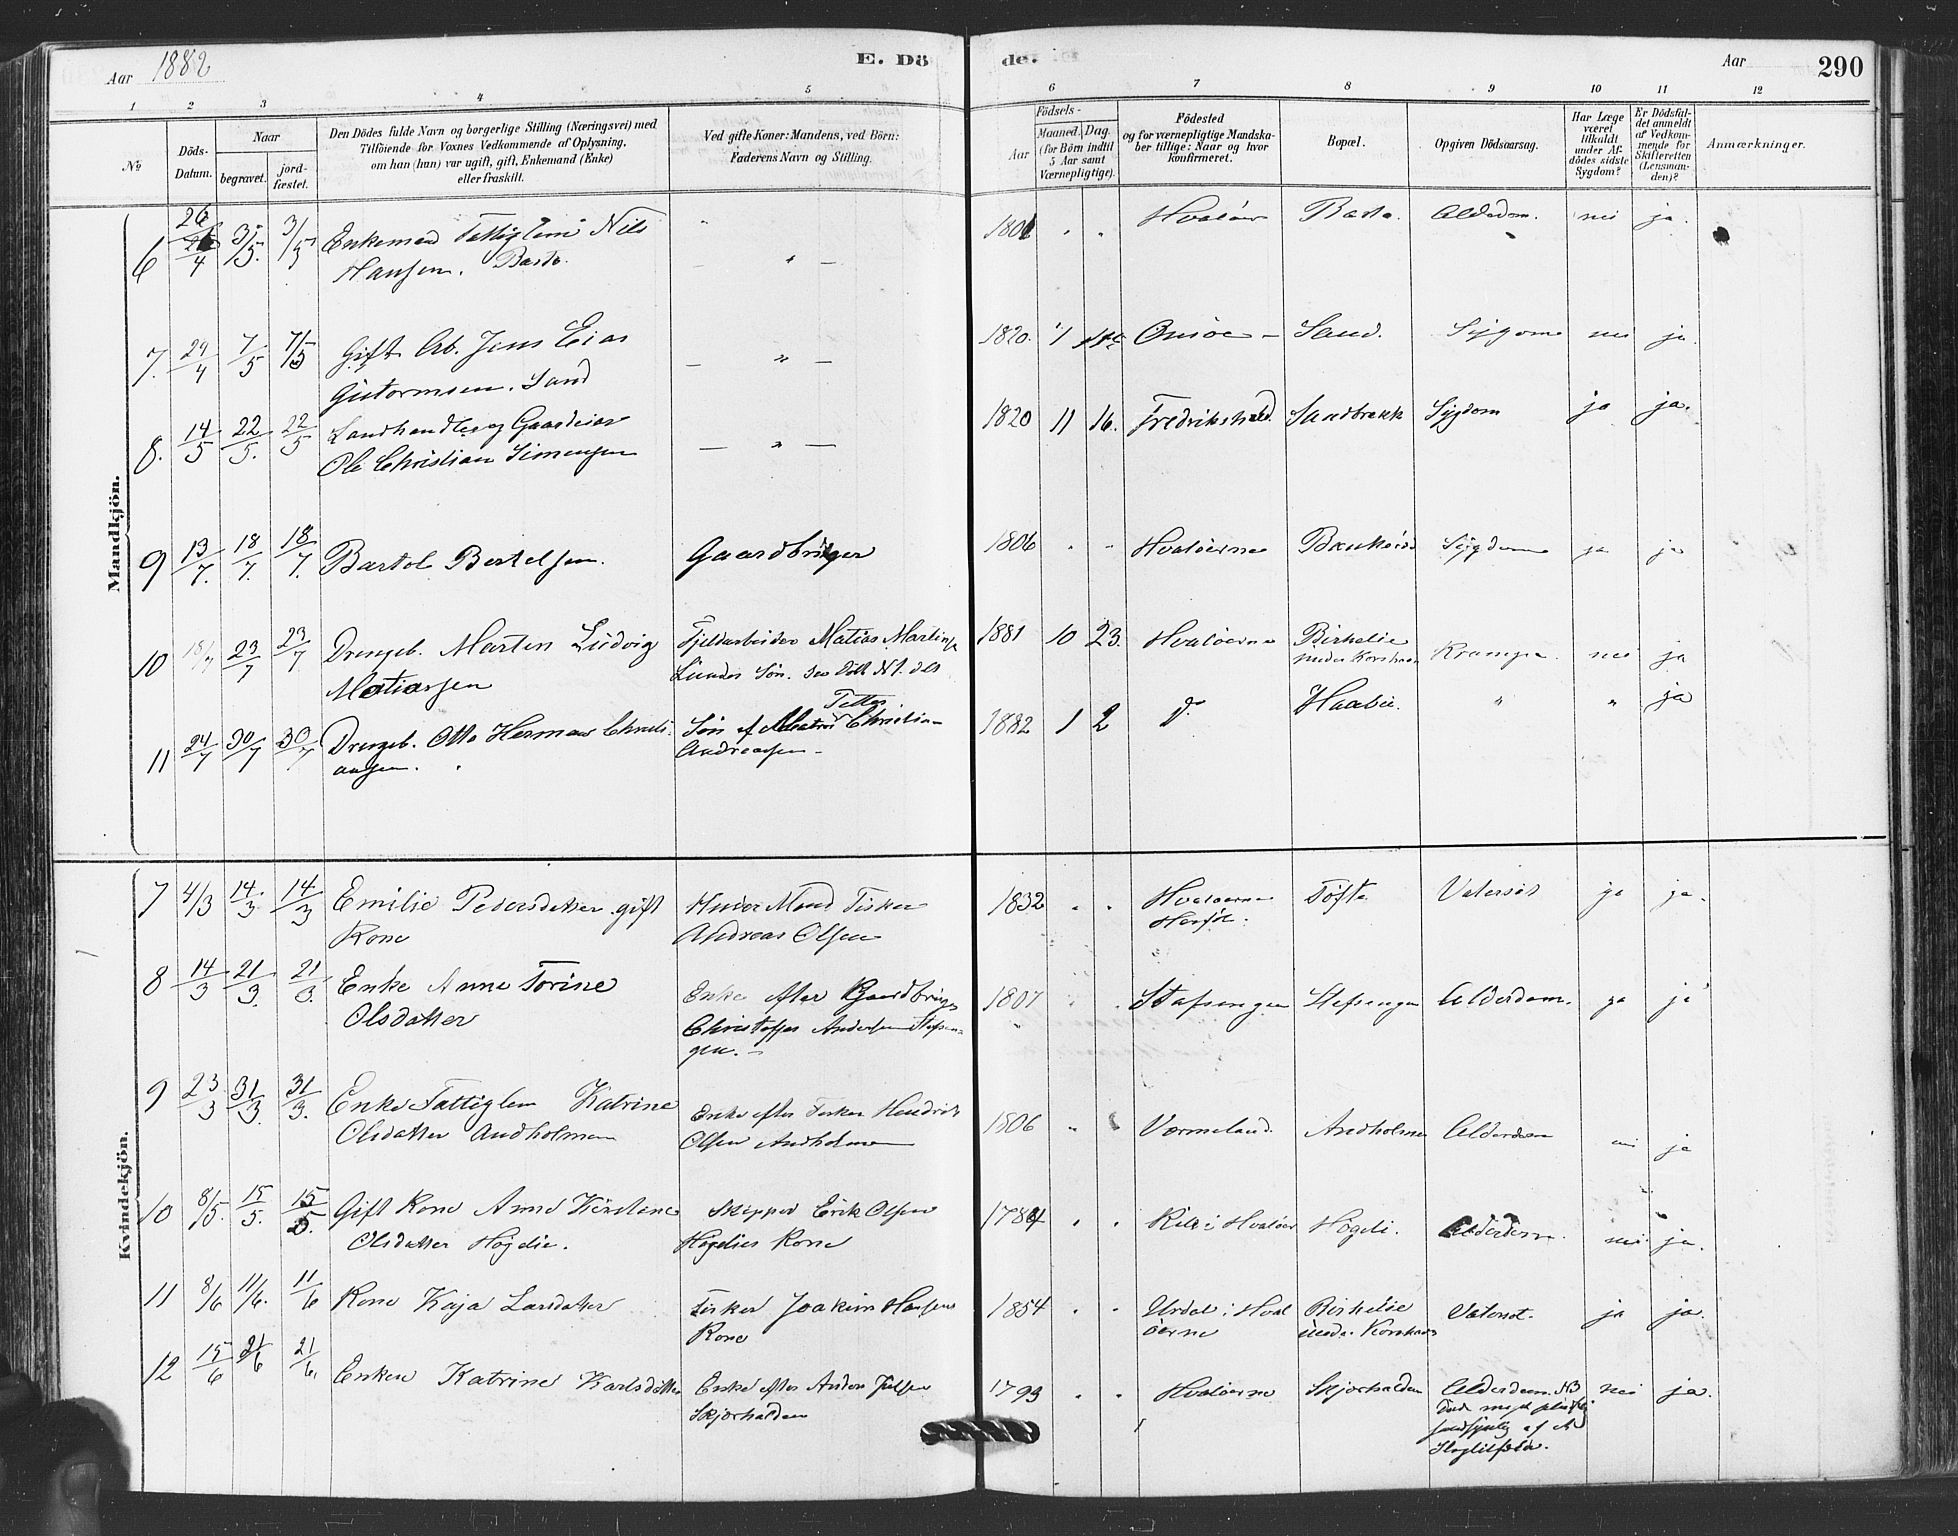 Aar 1882
E. Dö
de.
Aar
290
1 2 3 4 5 6 7 8 9 10 11 12
No
Döds-
Datum.
Naar
begravet.
jord-
fæstet.
Den Dödes fulde Navn og borgerlige Stilling (Næringsvei) med
Tilföiende for Voxnes Vedkommende af Oplysning,
om han (hun) var ugift, gift, Enkemand (Enke)
eller fraskilt.
Ved gifte Koner: Mandens, ved Börn:
Faderens Navn og Stilling.
Födsels-
Aar
Maaned. Dag.
(for Börn indtil
5 Aar samt
Værnepligtige).
Födested
og for værnepligtige Mandska-
ber tillige: Naar og hvor
konfirmeret.
Bopæl.
Opgiven Dödsaarsag.
Har Læge
været
tilkaldt
under Af-
dödes sidste
Sygdom?
Er Dödsfal-
det anmeldt
af Vedkom-
mende for
Skifteretten
(Lensman-
den)?
Anmærkninger.
Mandkjön.
6 26/4 3/5. 3/5 Enkemand Fattiglem Nils " 1801 " " Hvalöer Basto. Alderdom. nei ja.
Hansen. Basto. — " —
7. 29/4 7/5 7/5 Gift Arb. Jens Elias — " — 1820. Onsöe — Sand. Sygdom nei ja.
Gutormsen. Sand
8. 14/5 22/5. 22/5 Landhandler og Gaardeier — " — 1820 11 16. Fredrikshald. Sandbrekk Sygdom ja ja.
Ole Christian Simensen
9 13/7. 18/7. 18/7. Bartol Bertelsen. Gaardbruger 1806 " " Hvalöerne Sygdom ja ja
10 18/7 23/7 23/7 Drengeb. Marten Ludvig Fjeldarbeider Matias Martins 1881 10 23. Hvalöerne Birkelie Krampe. nei ja
Matiasen Lunder Sön. under Korshavn
11 24/7 30/7 30/7 Drengeb. Otto Herman Christi- Sön af Christian 1882 1 2 D. Haabu. " " ja
ansen. Andreassen —
Kvindekjön.
7 4/3 14/3. 14/3 Emilie Pedersdatter gift Hendes Mand Fisker 1832 " " Hvalöerne Töfte Vatersot ja ja.
Kone Andreas Olsen
8 14/3 21/3. 21/3. Enke Anne Torine Enke efter Gaardbruger 1807 " " Stafsengen Stafsengen Alderdom. ja ja
Olsdatter Christoffer Andersen Stafsen-
gen. —
9 23/3 31/3. 31/3. Enke Fattiglem Katrine Enke efter Fisker Hendrik 1806 " Vermeland. Andholmen Alderdom nei ja
Olsdatter Andholmen Olsen Andholmen
10 8/5. 15/5. 15/5. Gift Kone Anne Kirstine Skipper Erik Olsen 1784 " " i Hvalöer Högeli. Alderdom. nei ja.
Olsdatter Högelie. Högelies Kone
11 8/6 11/6. 11/6 Kone Kaja Larsdatter Fisker Joakim Hansens 1854 " " Urdal i Hval Birkelie Vatersot. ja ja.
Kone öerne under Korshavn
12 15/6 21/6 21/6. Enken Katrine Karlsdatter Enke efter Anders Julsen 1793 " " Hvalöerne Skjærhalden Alderdom. NB nei ja.
Skjærhalden Döde meget pludselig
sandsynlig af et
Slagtilfælde.